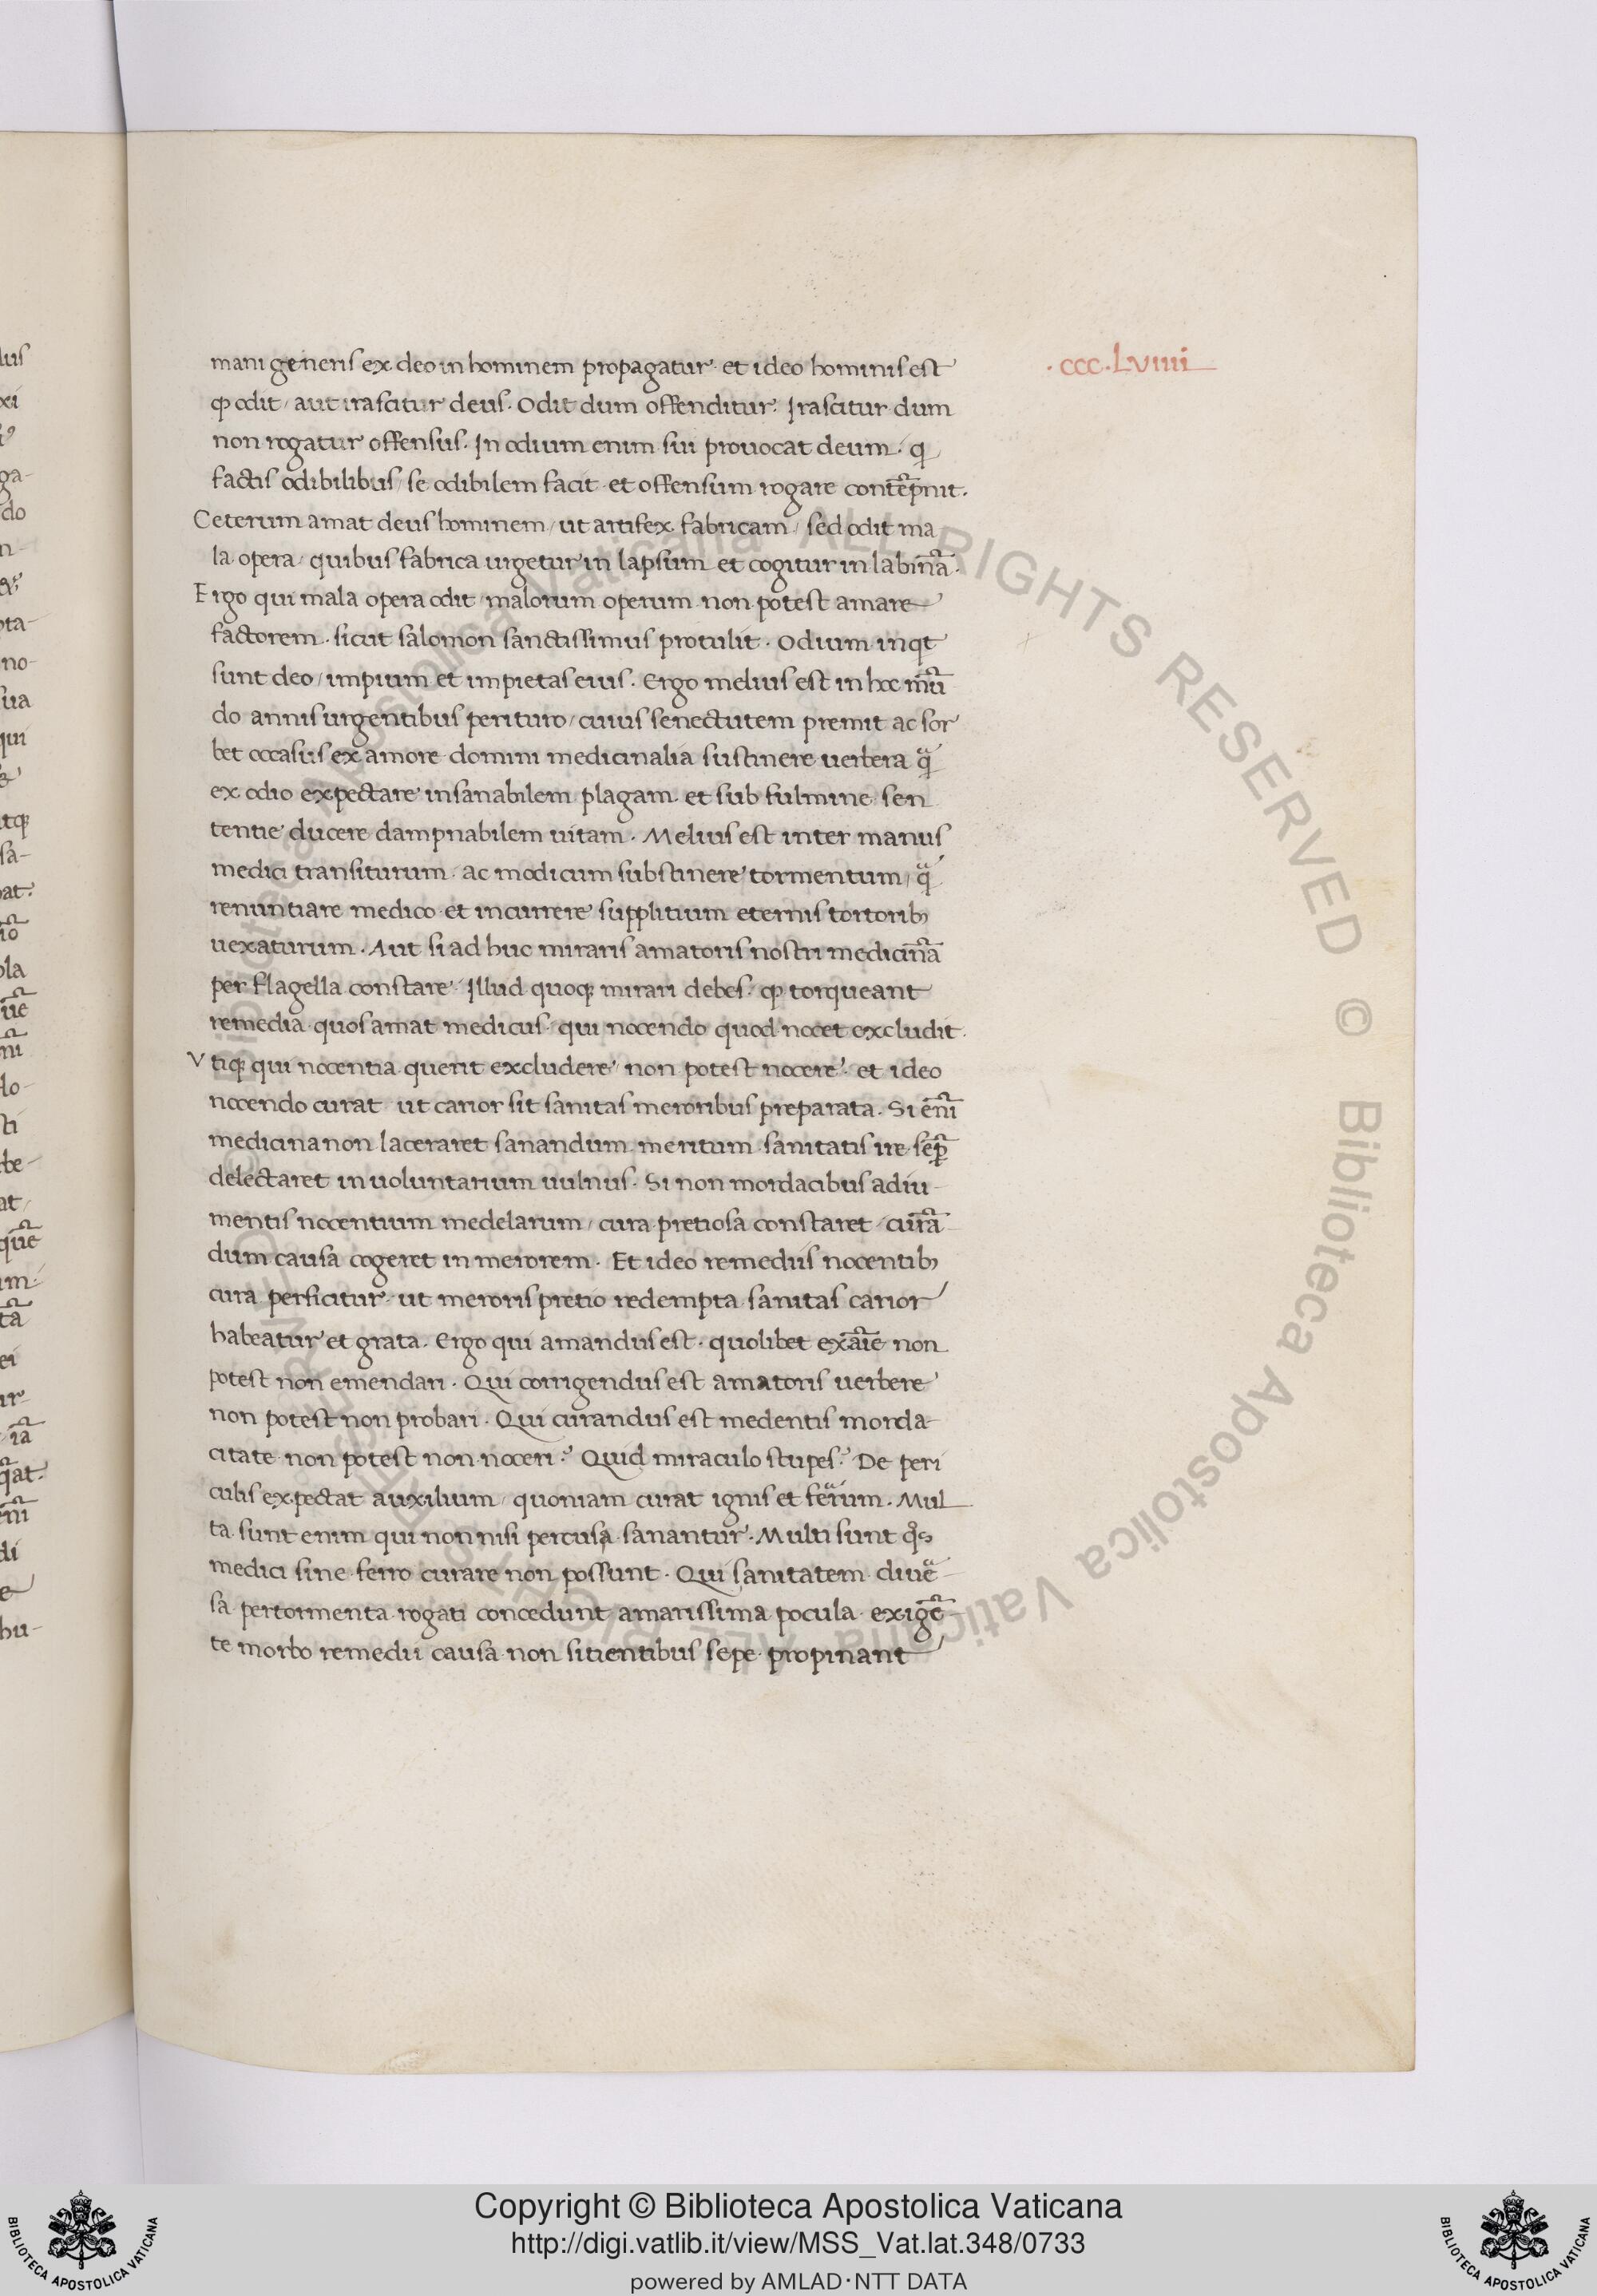 ·ccc·Lviiii
mani generis ex deo in hominem propagatur· et ideo hominis est
ꝙ odit/ aut irascitur deus. Odit dum offenditur. Irascitur dum
non rogatur offensus. In odium enim sui prouocat deum· q
factis odibilibus/ se odibilem facit· et offensum rogare contēpnit.
Ceterum amat deus hominem/ ut artifex fabricam/ sed odit ma
la opera/ quibus fabrica urgetur in lapsum et cogitur in labinā.
Ergo qui mala opera odit/ malorum operum non potest amare
factorem· sicut salomon sanctissimus protulit. Odium inqt
sunt deo/ impium et impietas eius. Ergo melius est in hoc mū
do annis urgentibus perituro/ cuius senectutem premit ac sor
bet occasus ex amore domini medicinalia sustinere uerbera q̄
ex odio expectare insanabilem plagam· et sub fulmine sen
tentie ducere dampnabilem uitam. Melius est inter manus
medici transiturum· ac modicum substinere tormentum/ q̄
renuntiare medico et incurrere supplitium eternis tortorib;
uexaturum. Aut si ad huc miraris amatoris nostri medicinā
per flagella constare· Illud quoq; mirari debes· ꝙ torqueant
remedia quos amat medicus· qui nocendo quod nocet excludit.
Vtiq; qui nocentia querit excludere/ non potest nocere· et ideo
nocendo curat· ut carior sit sanitas meroribus preparata. Si enī
medicina non laceraret sanandum· meritum sanitatis ire sep̄
delectaret in uoluntarium uulnus. Si non mordacibus adiu-
mentis nocentium medelarum/ cura pretiosa constaret· curā
dum causa cogeret in merorem. Et ideo remediis nocentib;
cura perficitur· ut meroris pretio redempta sanitas carior
habeatur et grata. Ergo qui amandus est· quolibet exāīe non
potest non emendari. Qui corrigendus est amatoris uerbere
non potest non probari. Qui curandus est medentis morda-
citate non potest non noceri? Quid miraculo stupes? De peri
culis expectat auxilium/ quoniam curat ignis et ferum. Mul
ta sunt enim qui non nisi percusa sanantur. Multi sunt qos
medici sine ferro curare non possunt. Qui sanitatem diue-
sa per tormenta rogati concedunt· amarissima pocula exigē-
te morbo remedii causa non sitientibus sepe propinant
Copyright © Biblioteca Apostolica Vaticana
http://digi.vatlib.it/view/MSS_Vat.lat.348/0733
powered by AMLAD·NTT DATA